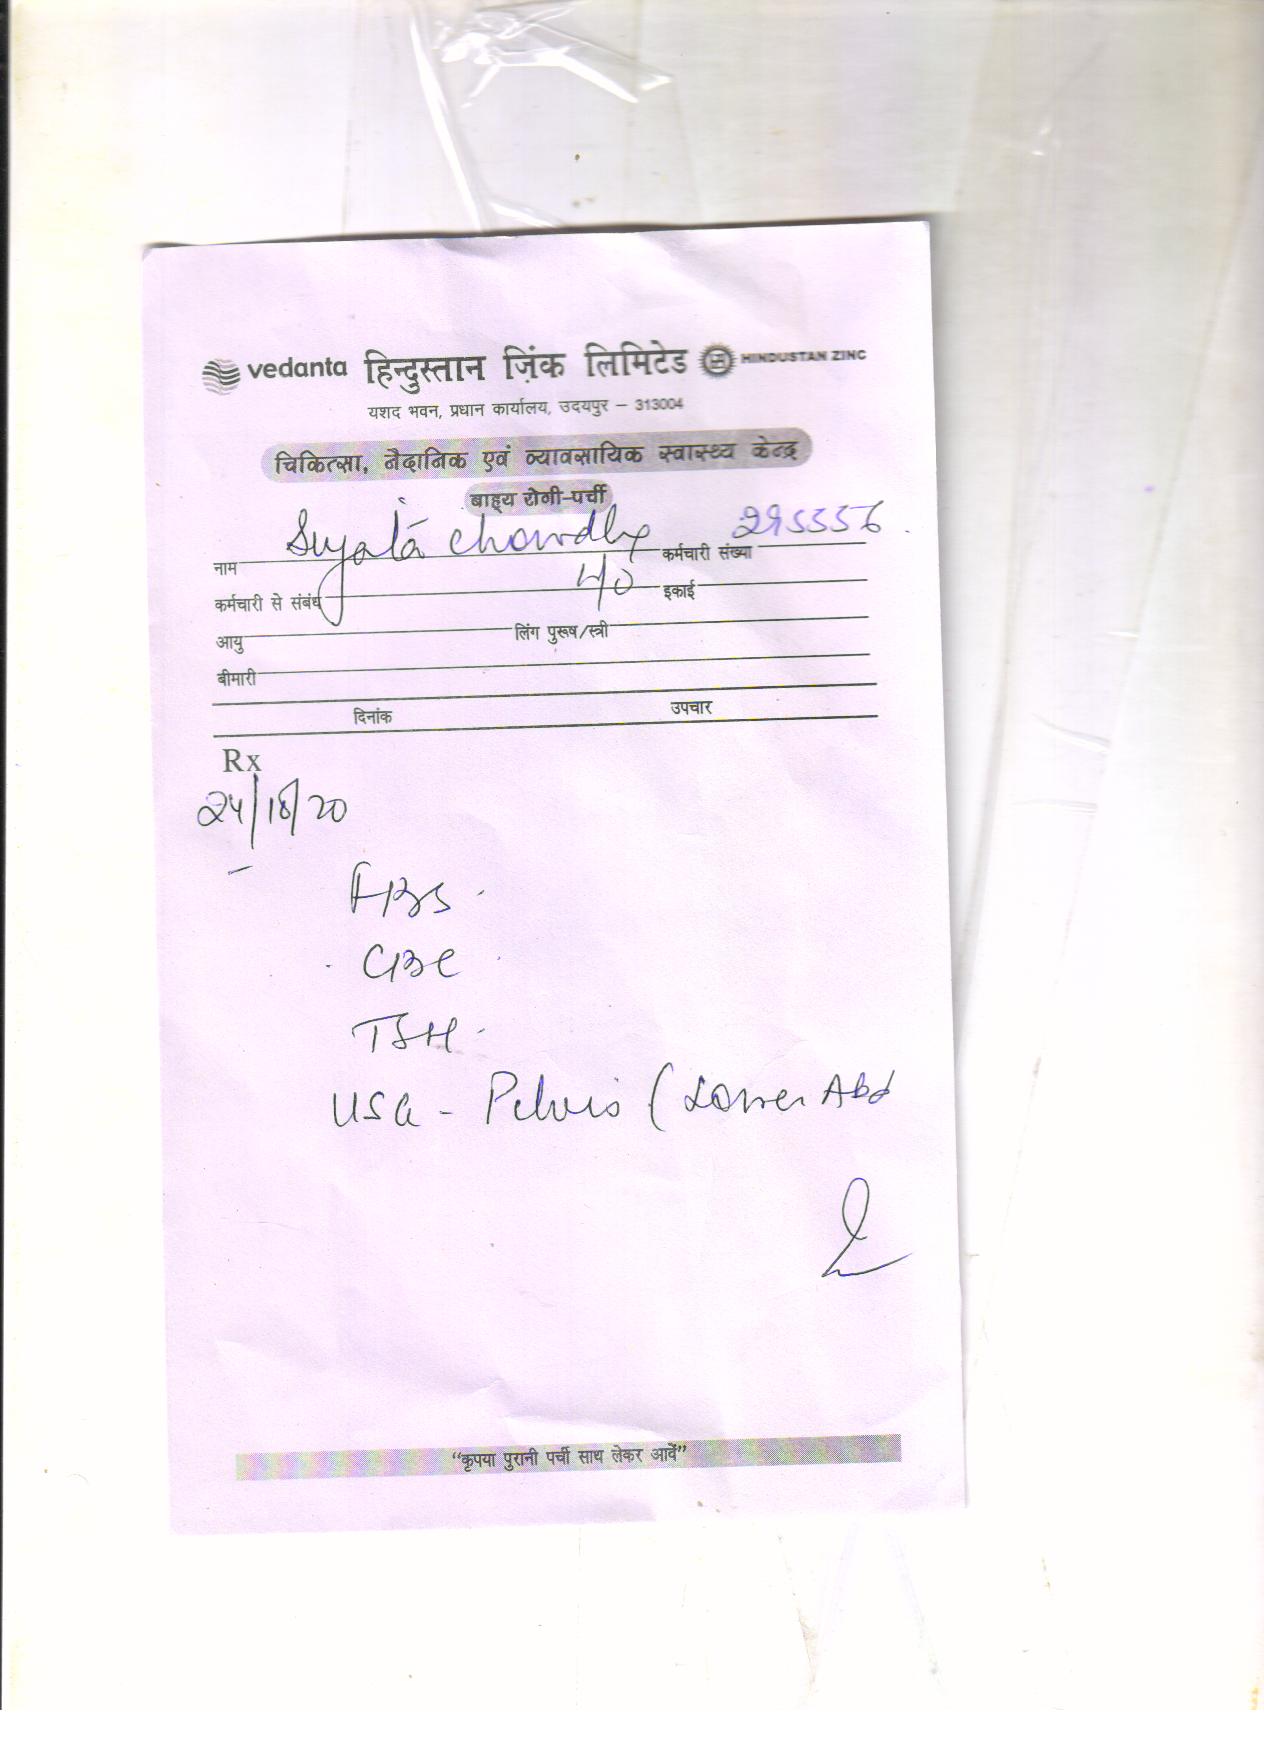 vedanta हिन्दुस्तान ज़िंक लिमिटेड HINDUSTAN ZINC
यशद भवन, प्रधान कार्यालय, उदयपुर – 313004
चिकित्सा, नैदानिक एवं व्यावसायिक स्वास्थ्य केन्द्र
बाह्य रोगी-पर्ची
नाम Sujata Chowdhy कर्मचारी संख्या
कर्मचारी से संबंध इकाई
आयु लिंग पुरूष/स्त्री
बीमारी
दिनांक उपचार
Rx
CBC
TSH
USG - Pelvis (Lower Abd
“कृपया पुरानी पर्ची साथ लेकर आवें”